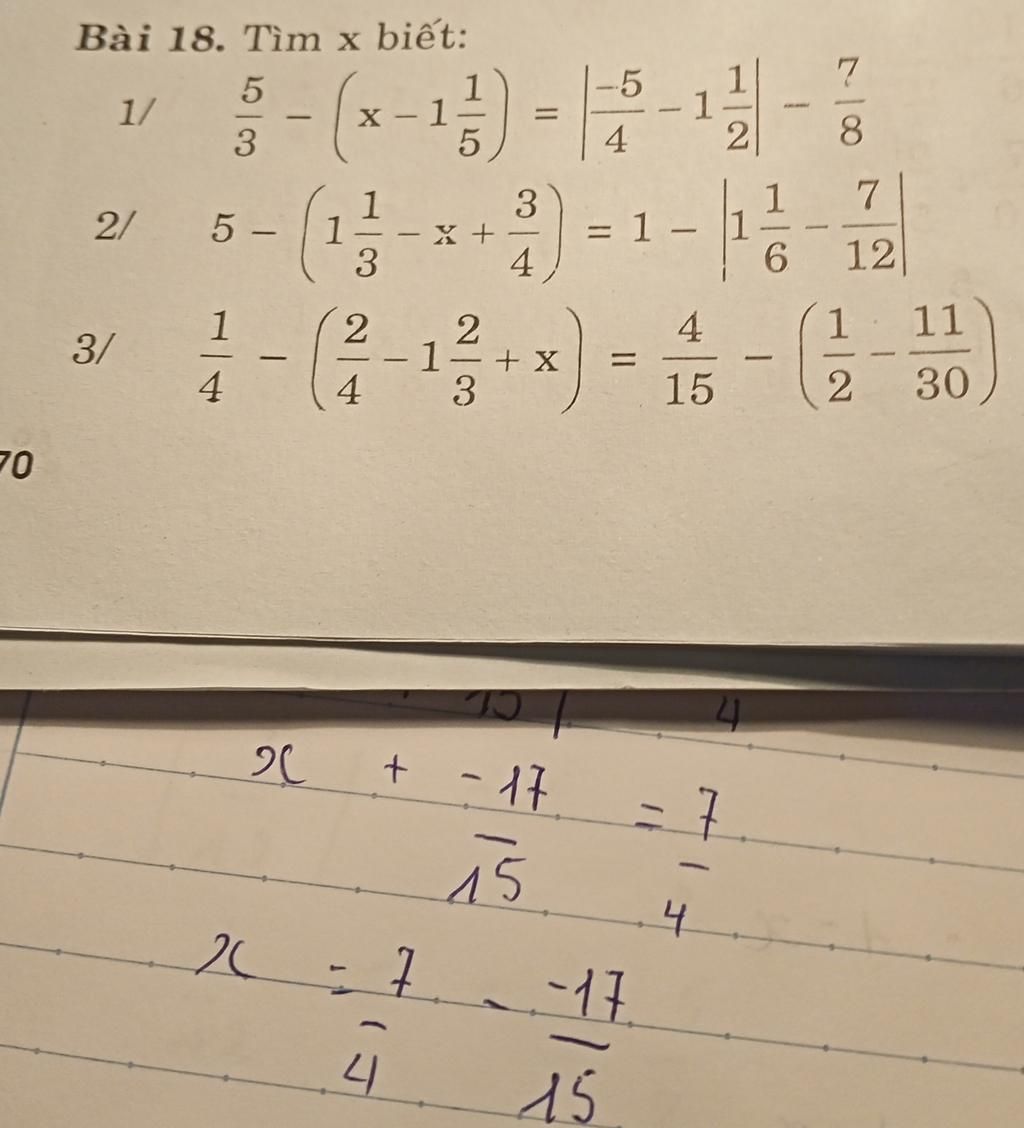 Bài 18. Tìm x biết:
1/ 5/3 − (x − 1 1/5) = |−5/4 − 1 1/2| − 7/8
2/ 5 − (1 1/3 − x + 3/4) = 1 − |1 1/6 − 7/12|
3/ 1/4 − (2/4 − 1 2/3 + x) = 4/15 − (1/2 − 11/30)
70
15 4
x + -17/15 = 7/4
x = 7/4 - -17/15